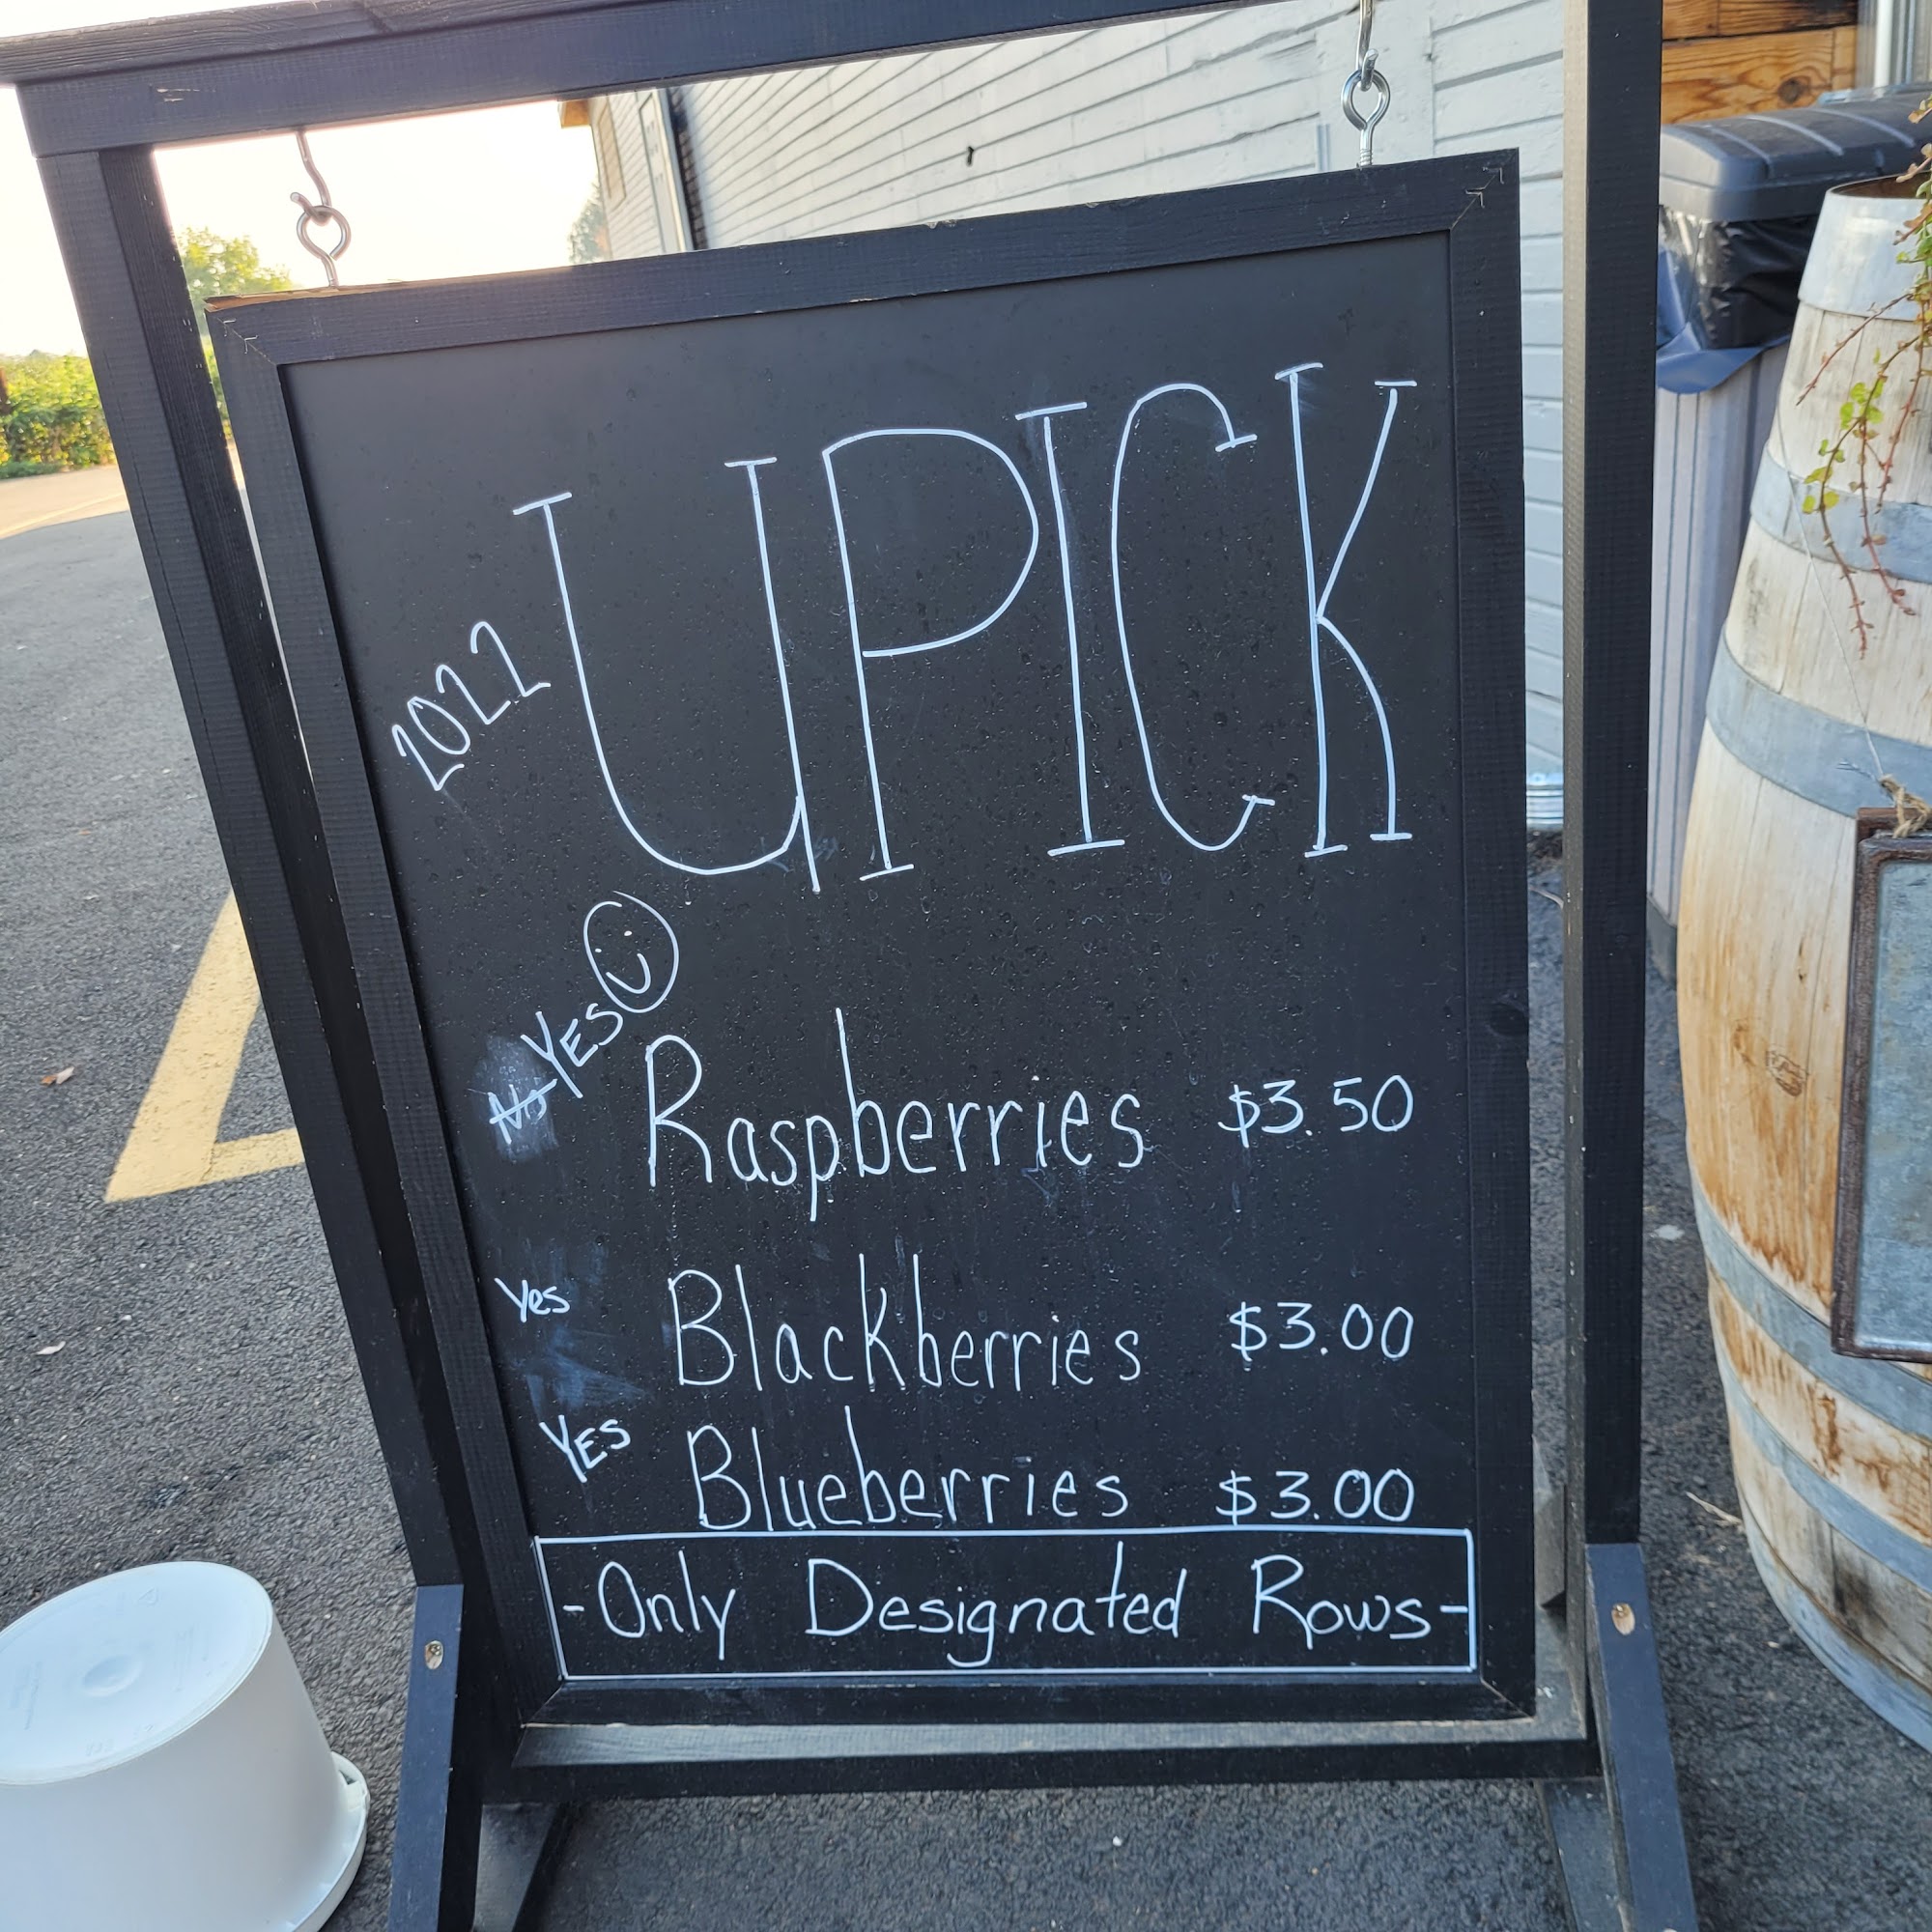 2022
UPICK
No YES
Raspberries $3.50
Yes Blackberries $3.00
YES Blueberries $3.00
-Only Designated Rows-